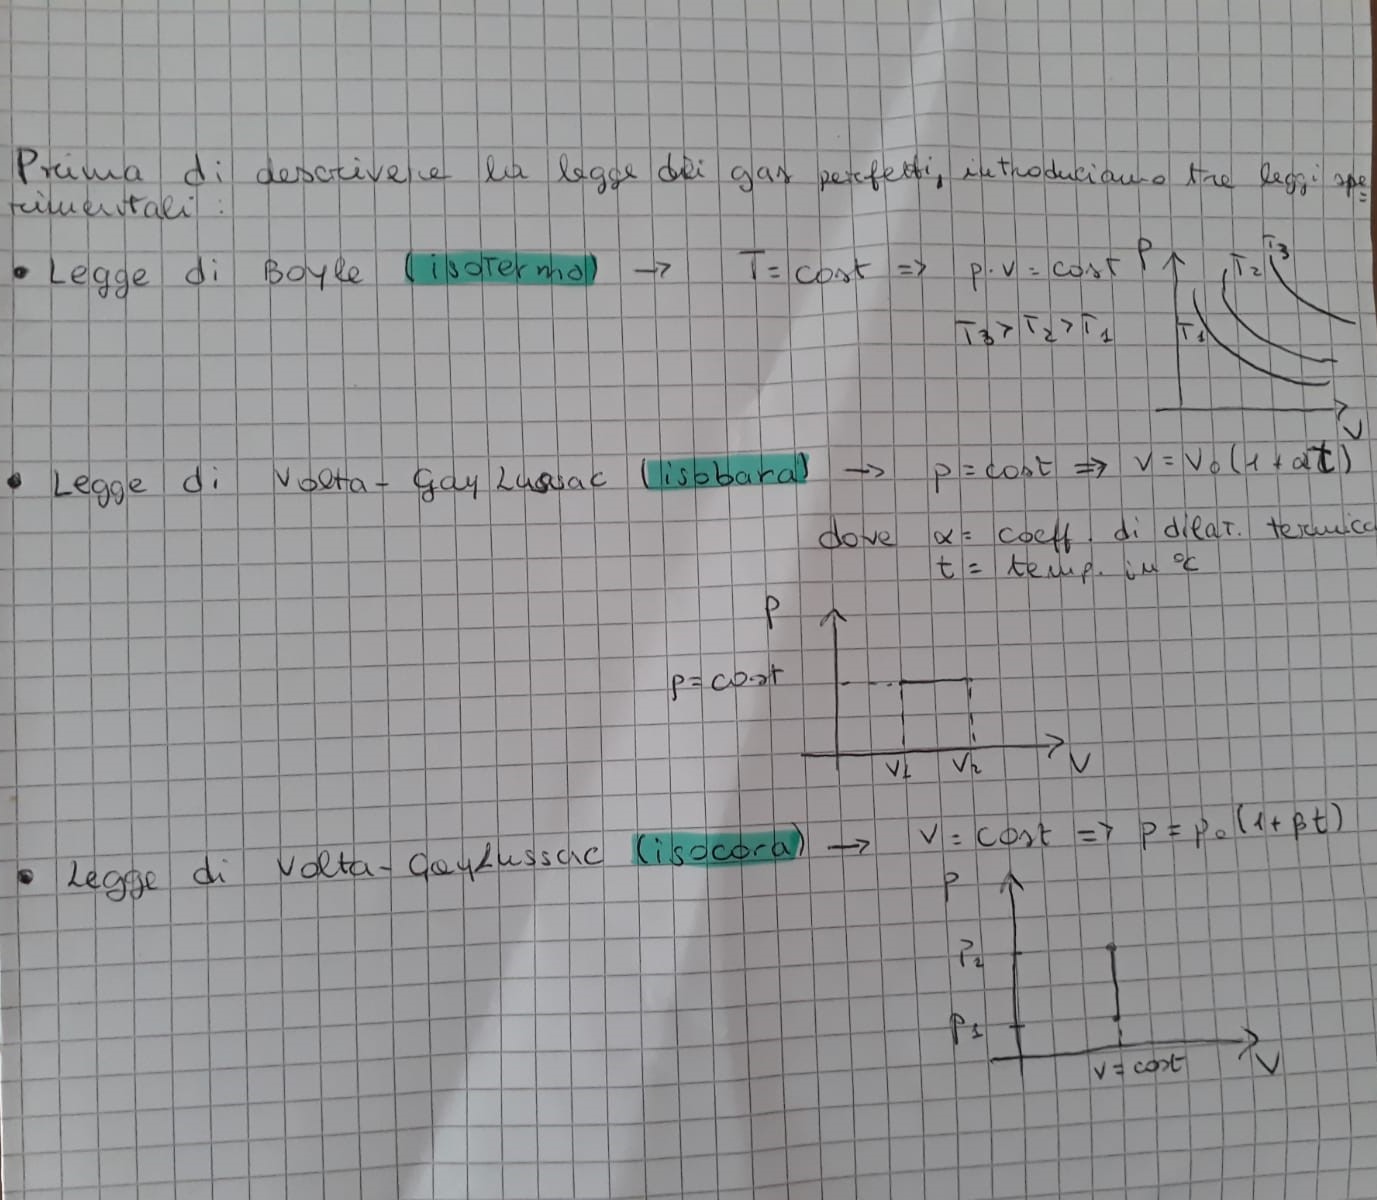 Prima di descrivere la legge dei gas perfetti, introduciamo tre leggi spe=
rimentali:
• Legge di Boyle (isoterma) → T = cost => p·v = cost
T3 > T2 > T1
P
T1
T2
T3
V
• Legge di Volta - Gay Lussac (isobara) → p = cost => V = V0 (1 + αt)
dove α = coeff. di dilat. termica
t = temp. in °C
P
p = cost
V1 V2 V
• Legge di Volta - Gay Lussac (isocora) → V = cost => p = p0 (1 + βt)
P
P2
P1
V = cost V